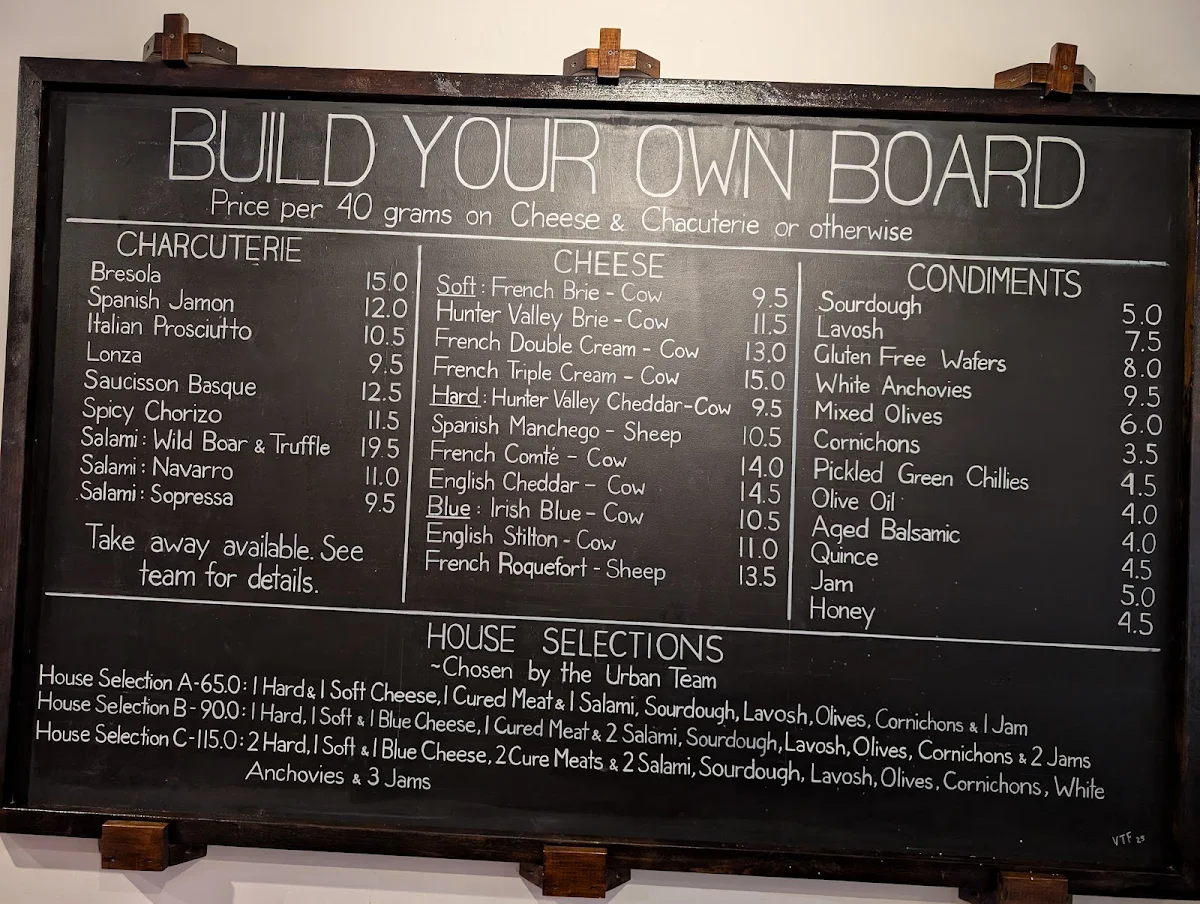 BUILD YOUR OWN BOARD
Price per 40 grams on Cheese & Chacuterie or otherwise
CHARCUTERIE
Bresola 15.0
Spanish Jamon 12.0
Italian Prosciutto 10.5
Lonza 9.5
Saucisson Basque 12.5
Spicy Chorizo 11.5
Salami: Wild Boar & Truffle 19.5
Salami: Navarro 11.0
Salami: Sopressa 9.5
Take away available. See
team for details.
CHEESE
Soft: French Brie - Cow 9.5
Hunter Valley Brie - Cow 11.5
French Double Cream - Cow 13.0
French Triple Cream - Cow 15.0
Hard: Hunter Valley Cheddar - Cow 9.5
Spanish Manchego - Sheep 10.5
French Comté - Cow 14.0
English Cheddar - Cow 14.5
Blue: Irish Blue - Cow 10.5
English Stilton - Cow 11.0
French Roquefort - Sheep 13.5
CONDIMENTS
Sourdough 5.0
Lavosh 7.5
Gluten Free Wafers 8.0
White Anchovies 9.5
Mixed Olives 6.0
Cornichons 3.5
Pickled Green Chillies 4.5
Olive Oil 4.0
Aged Balsamic 4.0
Quince 4.5
Jam 5.0
Honey 4.5
HOUSE SELECTIONS
~Chosen by the Urban Team
House Selection A-65.0: 1 Hard & 1 Soft Cheese, 1 Cured Meat & 1 Salami, Sourdough, Lavosh, Olives, Cornichons & 1 Jam
House Selection B - 90.0: 1 Hard, 1 Soft & 1 Blue Cheese, 1 Cured Meat & 2 Salami, Sourdough, Lavosh, Olives, Cornichons & 2 Jams
House Selection C-115.0: 2 Hard, 1 Soft & 1 Blue Cheese, 2 Cure Meats & 2 Salami, Sourdough, Lavosh, Olives, Cornichons, White
Anchovies & 3 Jams
VTF 25